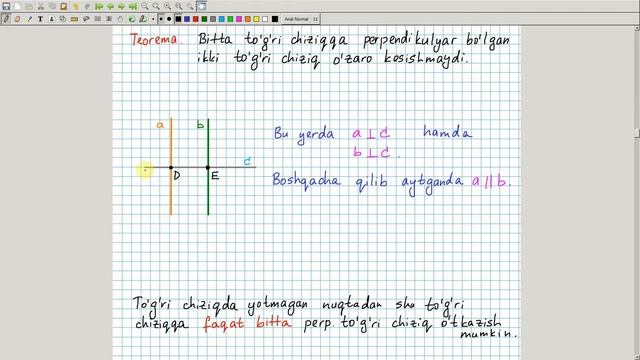 Arial Normal 12
Teorema. Bitta to'g'ri chiziqqa perpendikulyar bo'lgan
ikki to'g'ri chiziq o'zaro kosishmaydi.
a
b
c
D
E
Bu yerda a⊥c hamda
b⊥c.
Boshqacha qilib aytganda a||b.
To'g'ri chiziqda yotmagan nuqtadan shu to'g'ri
chiziqqa faqat bitta perp. to'g'ri chiziq o'tkazish
mumkin.